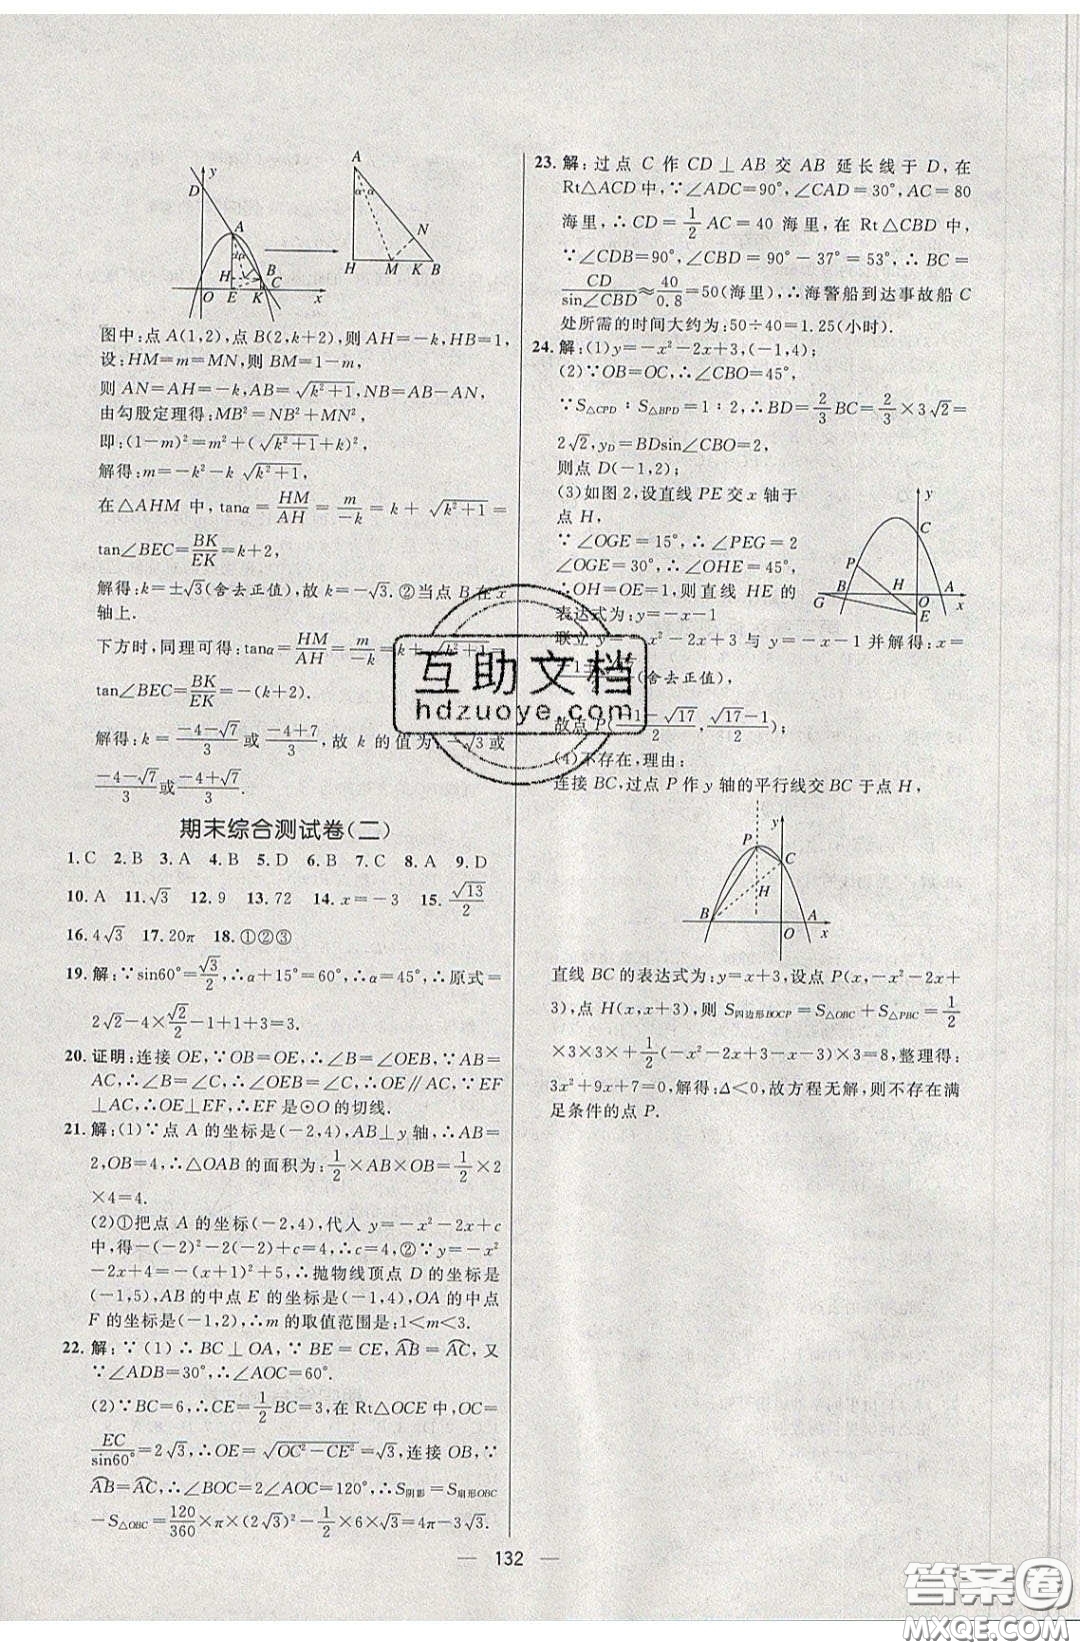 图中:点 A(1,2),点 B(2,k+2),则 AH=-k,HB=1,
设:HM=m=MN,则 BM=1-m,
则 AN=AH=-k,AB=√(k²+1),NB=AB-AN,
由勾股定理得:MB²=NB²+MN²,
即:(1-m)²=m²+(√(k²+1)+k)²,
解得:m=-k²-k√(k²+1),
在△AHM 中,tanα=HM/AH=m/-k=k+√(k²+1)=
tan∠BEC=BK/EK=k+2,
解得:k=±√3(舍去正值),故 k=-√3.②当点 B 在 x
轴上.
下方时,同理可得:tanα=HM/AH=m/-k=k+√(k²+1)=
tan∠BEC=BK/EK=-(k+2).
解得:k=(-4-√7)/3或(-4+7)/3,故 k 的值为:-√3或
(-4-√7)/3或(-4+√7)/3.
期末综合测试卷(二)
1.C 2.B 3.A 4.B 5.D 6.B 7.C 8.A 9.D
10.A 11.√3 12.9 13.72 14.x=-3 15.√13/2
16.4√3 17.20π 18.①②③
19.解:∵sin60°=√3/2,∴α+15°=60°,∴α=45°,∴原式=
2√2-4×√2/2-1+1+3=3.
20.证明:连接 OE,∵OB=OE,∴∠B=∠OEB,∵AB=
AC,∴∠B=∠C,∴∠OEB=∠C,∴OE∥AC,∵EF
⊥AC,∴OE⊥EF,∴EF是⊙O的切线.
21.解:(1)∵点 A 的坐标是(-2,4),AB⊥y 轴,∴AB=
2,OB=4,∴△OAB 的面积为:1/2×AB×OB=1/2×2
×4=4.
(2)①把点 A 的坐标(-2,4),代入 y=-x²-2x+c
中,得-(-2)²-2×(-2)+c=4,∴c=4,②∵y=-x²
-2x+4=-(x+1)²+5,∴抛物线顶点 D 的坐标是
(-1,5),AB的中点 E 的坐标是(-1,4),OA的中点
F 的坐标是(-1,2),∴m的取值范围是:1<m<3.
22.解:∵(1)∴BC⊥OA,∵BE=CE,AB=AC,又
∵∠ADB=30°,∴∠AOC=60°.
(2)∵BC=6,∴CE=1/2BC=3,在 Rt△OCE 中,OC=
EC/sin60°=2√3,∴OE=√(OC²-CE²)=√3,连接 OB,∵
AB=AC,∴∠BOC=2∠AOC=120°,∴S阴影=S扇形OBC
-S△OBC=120/360×π×(2√3)²-1/2×6×√3=4π-3√3.
23.解:过点 C 作 CD⊥AB 交 AB 延长线于 D,在
Rt△ACD 中,∵∠ADC=90°,∠CAD=30°,AC=80
海里,∴CD=1/2AC=40 海里,在 Rt△CBD 中,
∵∠CDB=90°,∠CBD=90°-37°=53°,∴BC=
CD/sin∠CBD≈40/0.8=50(海里),∴海警船到达事故船 C
处所需的时间大约为:50÷40=1.25(小时).
24.解:(1)y=-x²-2x+3,(-1,4);
(2)∵OB=OC,∴∠CBO=45°,
∵S△CPD∶S△BPD=1∶2,∴BD=2/3BC=2/3×3√2=
2√2,yD=BDsin∠CBO=2,
则点 D(-1,2);
(3)如图 2,设直线 PE 交 x 轴于
点 H,
∵∠OGE=15°,∴∠PEG=2
∠OGE=30°,∴∠OHE=45°,
∴OH=OE=1,则直线 HE 的
表达式为:y=-x-1
联立 y=-x²-2x+3 与 y=-x-1 并解得:x=
(舍去正值),
故点 P((-1-√17)/2,(√17-1)/2);
(4)不存在,理由:
连接 BC,过点 P 作 y 轴的平行线交 BC 于点 H,
直线 BC 的表达式为:y=x+3,设点 P(x,-x²-2x+
3),点 H(x,x+3),则 S四边形BOCP=S△OBC+S△PBC=1/2
×3×3+1/2(-x²-2x+3-x-3)×3=8,整理得:
3x²+9x+7=0,解得:Δ<0,故方程无解,则不存在满
足条件的点 P.
互助文档
hdzuoye.com
132
答案圈
MXQE.COM